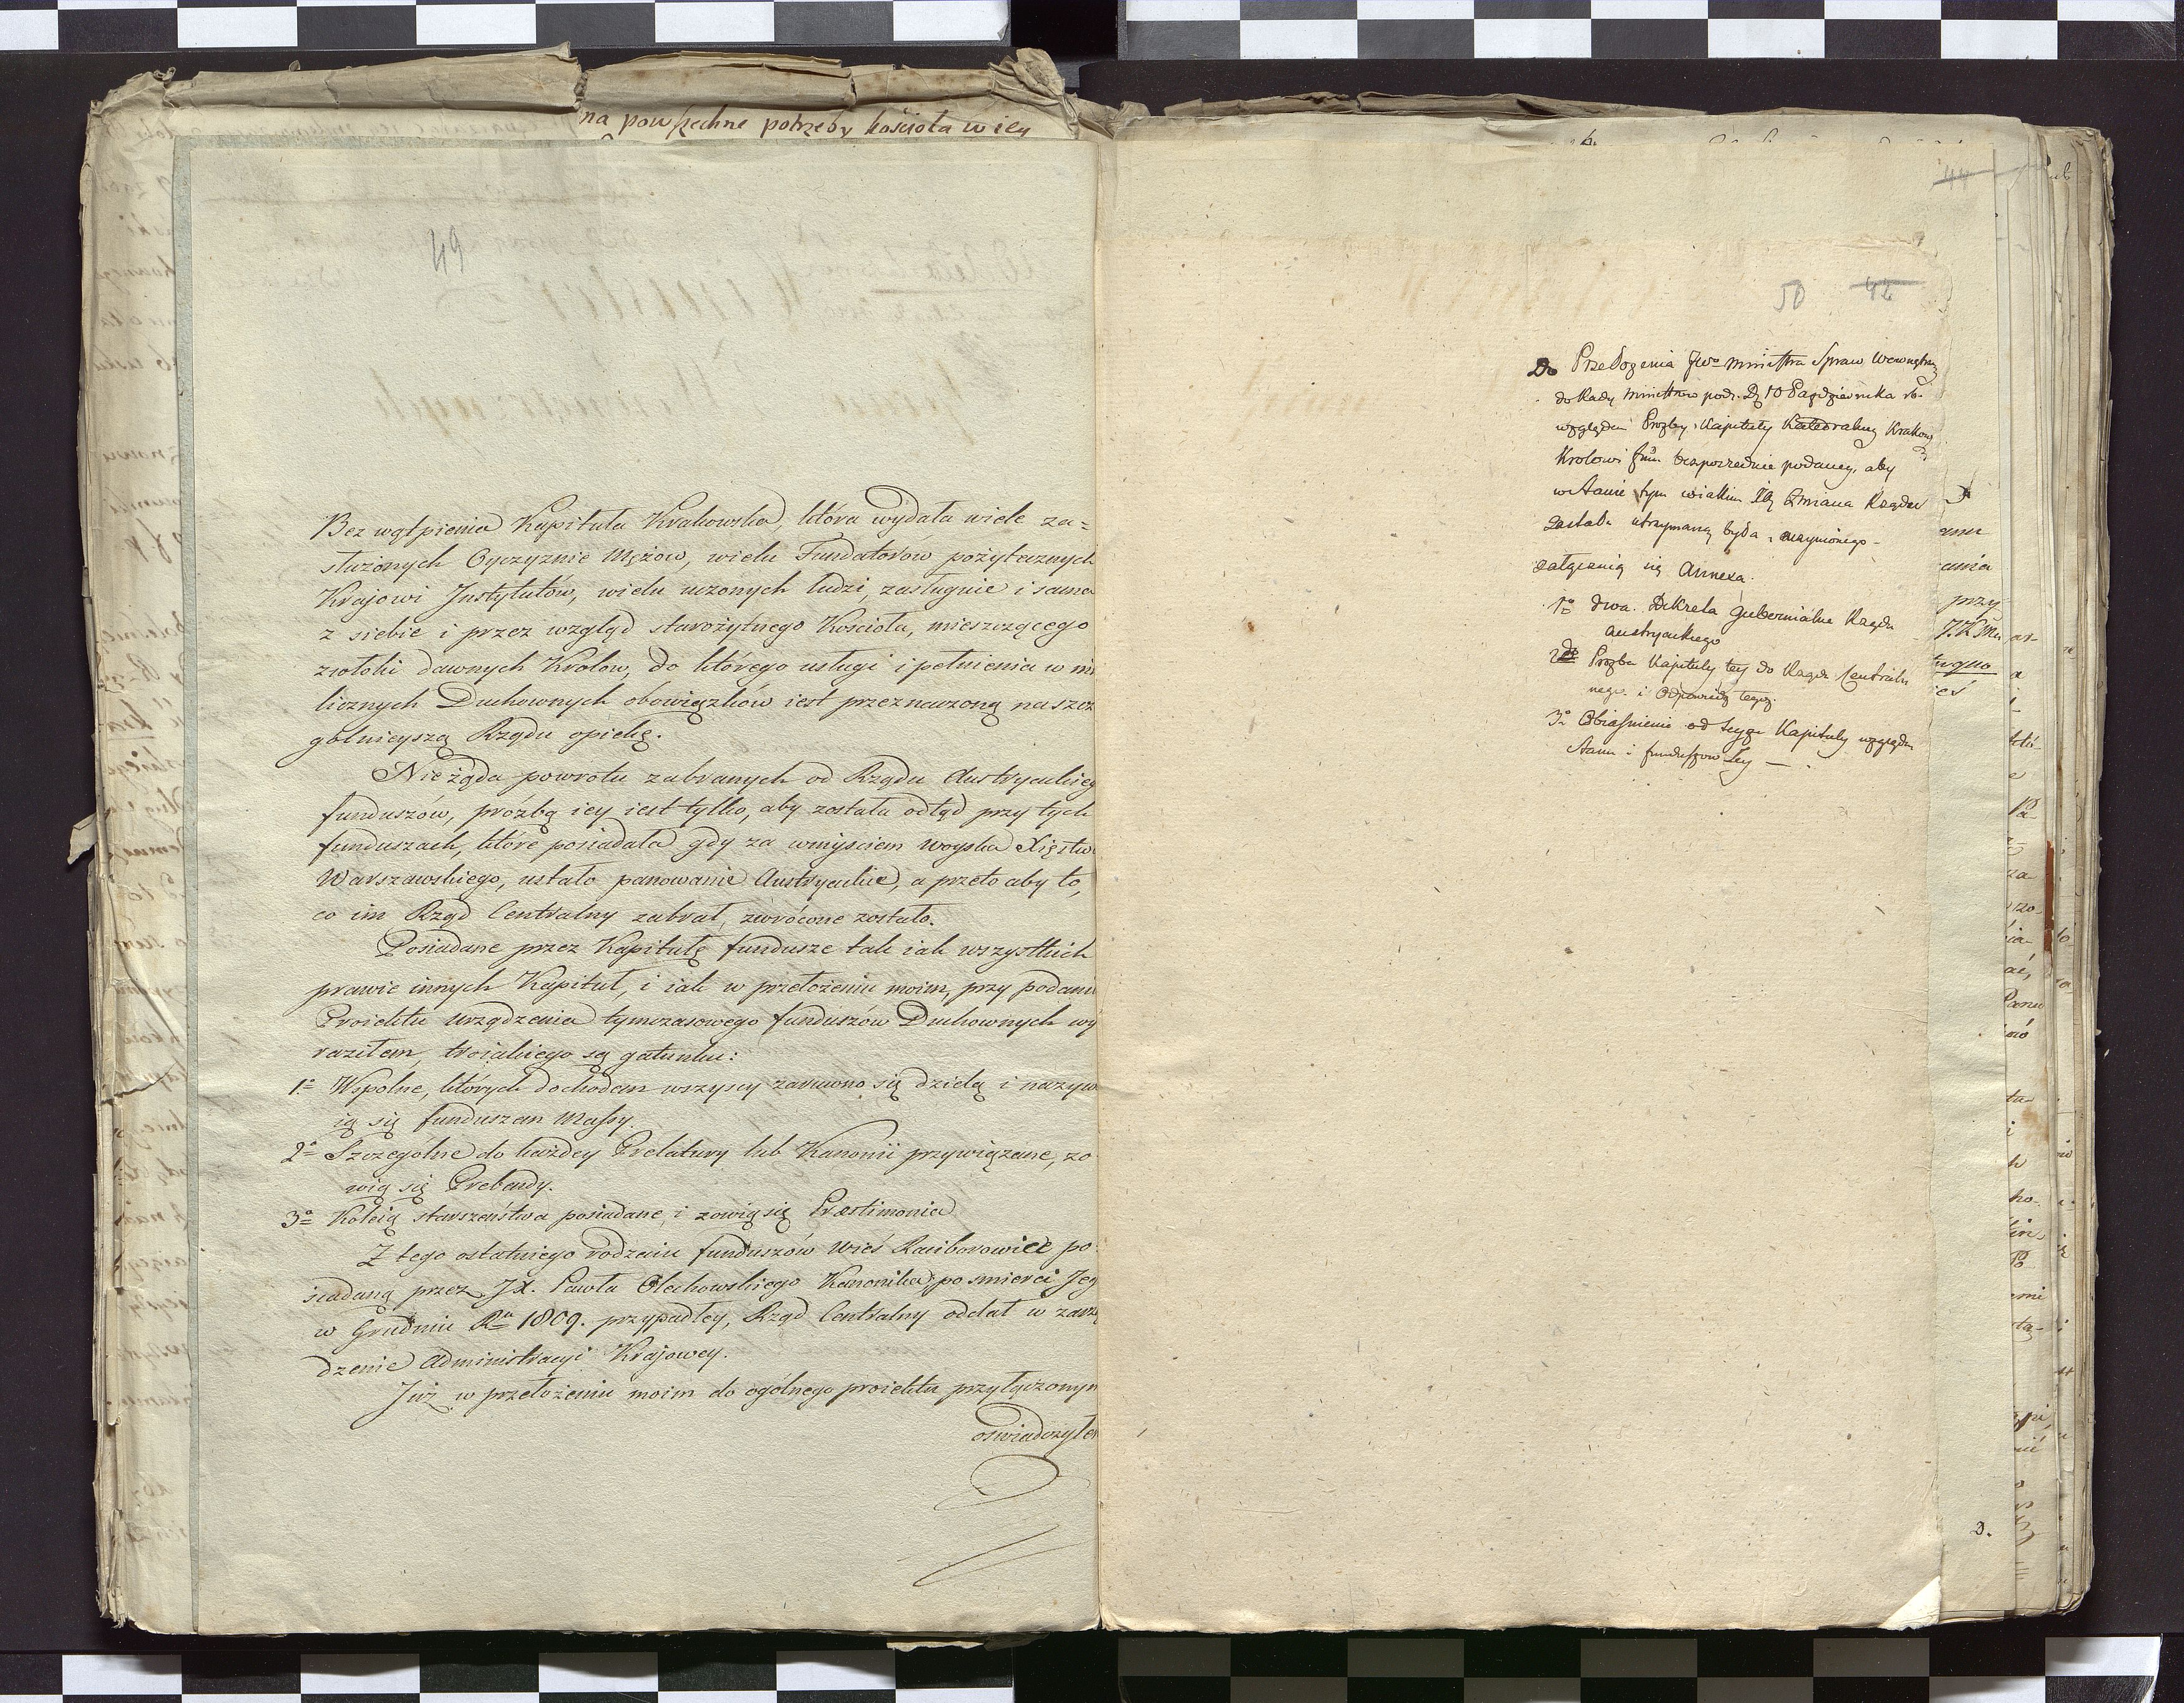 na powszechne potrzeby kościoła w iey
49
Bez wątpienia Kapituła Krakowska, która wydała wiele za=
służonych Oyczyznie Mężow, wielu Fundatorów pożytecznych
Krajowi Instytutów, wielu uczonych ludzi, zasługuie i sama
z siebie i przez wzgląd starożytnego Kościoła, mieszczącego
zwłoki dawnych Krolow, do którego usługi i pełnienia w ni
licznych Duchownych obowiązków iest przeznaczoną na szcze
gólnieyszą Rządu opiekę.
Nie żąda powrotu zabranych od Rządu Austryackieg
funduszów, próżbą iey iest tylko, aby została odtąd przy tych
funduszach, które posiadała gdy za wniyściem woyska Xięstwa
Warszawskiego, ustało panowanie Austryackie, a przeto aby to,
co im Rząd Centralny zabrał, zwrócone zostało.
Posiadane przez Kapitułę fundusze tak iak wszystkich
prawie innych Kapituł, i iak w przełożeniu moim, przy podaniu
Proiektu urządzenia tymczasowego funduszów Duchownych wy
raziłem, troiakiego są gatunku:
1º Wspólne, których dochodem wszyscy zarówno się dzielą i nazyw
ią się funduszem Massy.
2º Szczególne do każdey Prelatury lub Kanonii przywiązane, zo
wią się Prebendy.
3º Koleią starszeństwa posiadane, i zowią się Præstimonia
Z tego ostatniego rodzaiu funduszów wieś Raciborowice po
siadaną przez JX. Pawła Olechowskiego Kanonika, po smierci Jeg
w Grudniu Ru 1809. przypadłey, Rząd Centralny oddał w zarzą
dzenie Administracyi Krajowey.
Już w przełożeniu moim do ogólnego proiektu przyłączonym
oświadczyłem
44
50 42
Do Przełożenia JWo Ministra Spraw Wewnętrz
do Rady Ministrow pod D. 10 Pazdziernika rb.
względem Prozby Kapituły Katedralney Krakow
Krolowi Jmci bezposrednie podaney, aby
w stanie tym w iakim Ią Zmiana Rządu
zastała utrzymaną była, uczynionego
załączaią się Annexa.
1º dwa Dekreta Gubernialne Rządu
Austryackiego
2do Prozba Kapituły tey do Rządu Centraln
nego i Odpowiedź tegoż.
3º Obiaśnienie od teyże Kapituły względem
stanu i funduszow Iey —
przy
2.